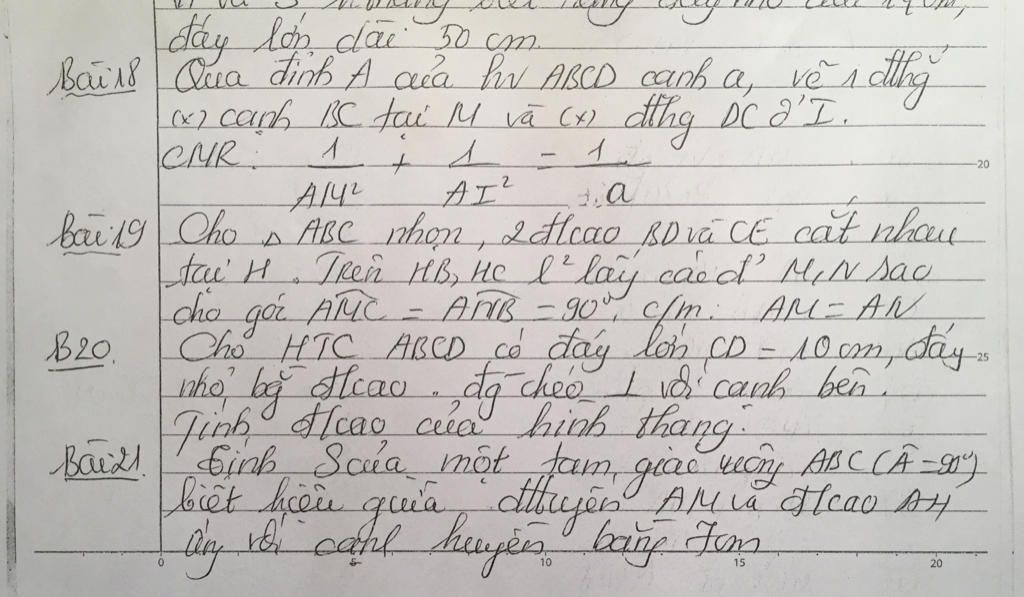 đáy lớn dài 50 cm.
Bài 18 Qua đỉnh A của hv ABCD cạnh a, vẽ 1 đthg
(x) cạnh BC tại M và (x) đthg DC ở I.
CMR: 1/AM² + 1/AI² = 1/a
Bài 19 Cho △ ABC nhọn, 2 đcao BD và CE cắt nhau
tại H. Trên HB, HC l² lấy các đ' M, N sao
cho góc AMC = ANB = 90°. c/m: AM = AN
B20. Cho HTC ABCD có đáy lớn CD = 10 cm, đáy
nhỏ bg đcao. đg chéo ⊥ với cạnh bên.
Tính đcao của hình thang.
Bài 21. Tính S của một tam giác vuông ABC (Â = 90°)
biết hiệu giữa đtuyến AM và đcao AH
ứng với cạnh huyền bằng 7cm
20
25
0 5 10 15 20